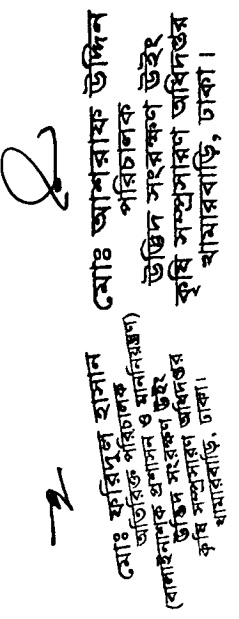 মোঃ ফরিদুল হাসান
অতিরিক্ত পরিচালক
(বালাইনাশক প্রশাসন ও মাননিয়ন্ত্রণ)
উদ্ভিদ সংরক্ষণ উইং
কৃষি সম্প্রসারণ অধিদপ্তর
খামারবাড়ি, ঢাকা।
মোঃ আশরাফ উদ্দিন
পরিচালক
উদ্ভিদ সংরক্ষণ উইং
কৃষি সম্প্রসারণ অধিদপ্তর
খামারবাড়ি, ঢাকা।